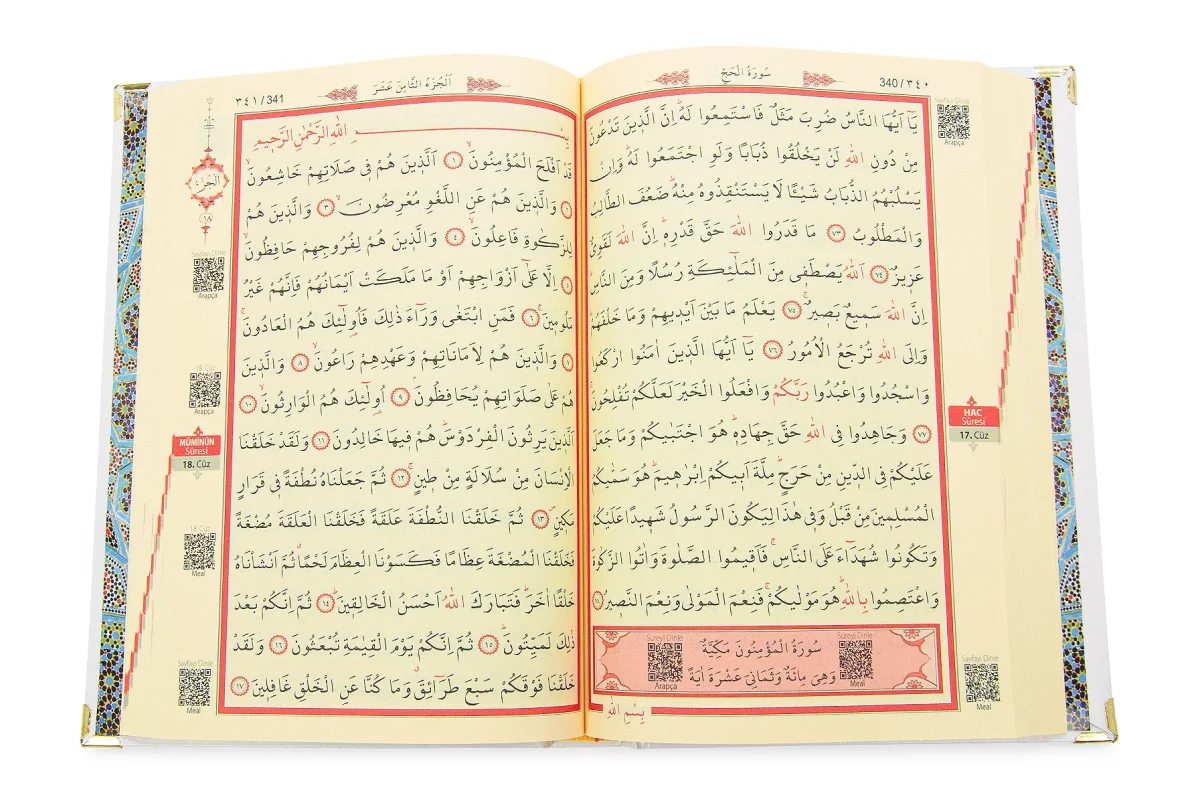 سُورَةُ الْحَجِّ
340/٣٤٠
يَٓا اَيُّهَا النَّاسُ ضُرِبَ مَثَلٌ فَاسْتَمِعُوا لَهُۜ اِنَّ الَّذ۪ينَ تَدْعُونَ
مِنْ دُونِ اللّٰهِ لَنْ يَخْلُقُوا ذُبَابًا وَلَوِ اجْتَمَعُوا لَهُۜ وَاِنْ
يَسْلُبْهُمُ الذُّبَابُ شَيْـًٔا لَا يَسْتَنْقِذُوهُ مِنْهُۜ ضَعُفَ الطَّالِبُ
وَالْمَطْلُوبُ ﴿٧٣﴾ مَا قَدَرُوا اللّٰهَ حَقَّ قَدْرِه۪ۜ اِنَّ اللّٰهَ لَقَوِيٌّ
عَز۪يزٌ ﴿٧٤﴾ اَللّٰهُ يَصْطَف۪ي مِنَ الْمَلٰٓئِكَةِ رُسُلًا وَمِنَ النَّاسِۜ
اِنَّ اللّٰهَ سَم۪يعٌ بَص۪يرٌۚ ﴿٧٥﴾ يَعْلَمُ مَا بَيْنَ اَيْد۪يهِمْ وَمَا خَلْفَهُمْۜ
وَاِلَى اللّٰهِ تُرْجَعُ الْاُمُورُ ﴿٧٦﴾ يَٓا اَيُّهَا الَّذ۪ينَ اٰمَنُوا ارْكَعُوا
وَاسْجُدُوا وَاعْبُدُوا رَبَّكُمْ وَافْعَلُوا الْخَيْرَ لَعَلَّكُمْ تُفْلِحُونَۚ
﴿٧٧﴾ وَجَاهِدُوا فِي اللّٰهِ حَقَّ جِهَادِه۪ۜ هُوَ اجْتَبٰيكُمْ وَمَا جَعَلَ
عَلَيْكُمْ فِي الدّ۪ينِ مِنْ حَرَجٍۜ مِلَّةَ اَب۪يكُمْ اِبْرٰه۪يمَۜ هُوَ سَمّٰيكُمُ
الْمُسْلِم۪ينَ مِنْ قَبْلُ وَف۪ي هٰذَا لِيَكُونَ الرَّسُولُ شَه۪يدًا عَلَيْكُمْ
وَتَكُونُوا شُهَدَٓاءَ عَلَى النَّاسِۚ فَاَق۪يمُوا الصَّلٰوةَ وَاٰتُوا الزَّكٰوةَ
وَاعْتَصِمُوا بِاللّٰهِۜ هُوَ مَوْلٰيكُمْۚ فَنِعْمَ الْمَوْلٰى وَنِعْمَ النَّص۪يرُ ﴿٧٨﴾
سُورَةُ الْمُؤْمِنُونَ مَكِّيَّةٌ
وَهِيَ مِائَةٌ وَثَمَانِيَ عَشْرَةَ اٰيَةً
بِسْمِ اللّٰهِ
Süreyi Dinle
Arapça
Süreyi Dinle
Meal
Sayfayı Dinle
Arapça
HAC
Sûresi
17. Cüz
Sayfayı Dinle
Meal
اَلْجُزْءُ الثَّامِنَ عَشَرَ
٣٤١/341
بِسْمِ اللّٰهِ الرَّحْمٰنِ الرَّح۪يمِ
قَدْ اَفْلَحَ الْمُؤْمِنُونَۙ ﴿١﴾ اَلَّذ۪ينَ هُمْ ف۪ي صَلَاتِهِمْ خَاشِعُونَۙ
﴿٢﴾ وَالَّذ۪ينَ هُمْ عَنِ اللَّغْوِ مُعْرِضُونَۙ ﴿٣﴾ وَالَّذ۪ينَ هُمْ
لِلزَّكٰوةِ فَاعِلُونَۙ ﴿٤﴾ وَالَّذ۪ينَ هُمْ لِفُرُوجِهِمْ حَافِظُونَۙ
﴿٥﴾ اِلَّا عَلٰٓى اَزْوَاجِهِمْ اَوْ مَا مَلَكَتْ اَيْمَانُهُمْ فَاِنَّهُمْ غَيْرُ
مَلُوم۪ينَۚ ﴿٦﴾ فَمَنِ ابْتَغٰى وَرَٓاءَ ذٰلِكَ فَاُو۬لٰٓئِكَ هُمُ الْعَادُونَۚ
﴿٧﴾ وَالَّذ۪ينَ هُمْ لِاَمَانَاتِهِمْ وَعَهْدِهِمْ رَاعُونَۙ ﴿٨﴾ وَالَّذ۪ينَ
هُمْ عَلٰى صَلَوَاتِهِمْ يُحَافِظُونَۢ ﴿٩﴾ اُو۬لٰٓئِكَ هُمُ الْوَارِثُونَۙ ﴿١٠﴾
اَلَّذ۪ينَ يَرِثُونَ الْفِرْدَوْسَۜ هُمْ ف۪يهَا خَالِدُونَ ﴿١١﴾ وَلَقَدْ خَلَقْنَا
الْاِنْسَانَ مِنْ سُلَالَةٍ مِنْ ط۪ينٍۚ ﴿١٢﴾ ثُمَّ جَعَلْنَاهُ نُطْفَةً ف۪ي قَرَارٍ
مَك۪ينٍۖ ﴿١٣﴾ ثُمَّ خَلَقْنَا النُّطْفَةَ عَلَقَةً فَخَلَقْنَا الْعَلَقَةَ مُضْغَةً
فَخَلَقْنَا الْمُضْغَةَ عِظَامًا فَكَسَوْنَا الْعِظَامَ لَحْمًاۗ ثُمَّ اَنْشَأْنَاهُ
خَلْقًا اٰخَرَۜ فَتَبَارَكَ اللّٰهُ اَحْسَنُ الْخَالِق۪ينَۜ ﴿١٤﴾ ثُمَّ اِنَّكُمْ بَعْدَ
ذٰلِكَ لَمَيِّتُونَۜ ﴿١٥﴾ ثُمَّ اِنَّكُمْ يَوْمَ الْقِيٰمَةِ تُبْعَثُونَ ﴿١٦﴾ وَلَقَدْ
خَلَقْنَا فَوْقَكُمْ سَبْعَ طَرَٓائِقَۗ وَمَا كُنَّا عَنِ الْخَلْقِ غَافِل۪ينَ ﴿١٧﴾
اَلْجُزْءُ
١٨
Sayfayı Dinle
Arapça
18. Cüz
Arapça
MÜMİNÛN
Sûresi
18. Cüz
18. Cüz
Meal
Sayfayı Dinle
Meal